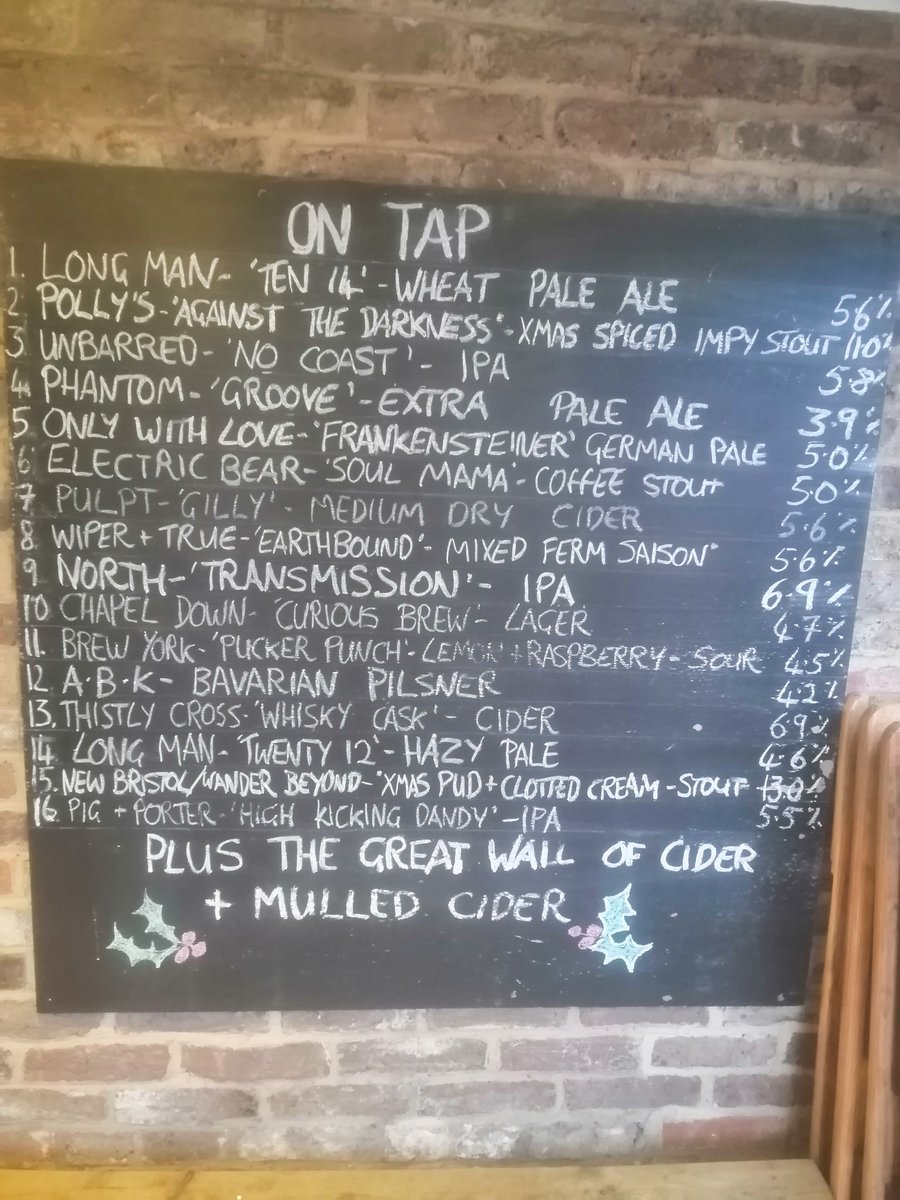 ON TAP
1. LONG MAN- 'TEN 14' - WHEAT PALE ALE 5.6%
2 POLLY'S-'AGAINST THE DARKNESS'-XMAS SPICED IMPY STOUT (10%
3 UNBARRED- 'NO COAST' - IPA 5.8%
4 PHANTOM- 'GROOVE' -EXTRA PALE ALE 3.9%
5 ONLY WITH LOVE-'FRANKENSTEINER' GERMAN PALE 5.0%
6 ELECTRIC BEAR-'SOUL MAMA'-COFFEE STOUT 5.0%
7 PULPT-'GILLY' - MEDIUM DRY CIDER 5.6%
8 WIPER + TRUE-'EARTHBOUND'- MIXED FERM SAISON" 5.6%
9 NORTH-'TRANSMISSION'- IPA 6.9%
10 CHAPEL DOWN- 'CURIOUS BREW'- LAGER 4.7%
11. BREW YORK-'PUCKER PUNCH'-LEMON+RASPBERRY- SOUR 4.5%
12 A·B·K- BAVARIAN PILSNER 4.2%
13. THISTLY CROSS-'WHISKY CASK'- CIDER 6.9%
14 LONG MAN-'TWENTY 12'-HAZY PALE 4.6%
15. NEW BRISTOL/WANDER BEYOND-'XMAS PUD+CLOTTED CREAM-STOUT 13.0%
16. PIG + PORTER-'HIGH KICKING DANDY'-IPA 5.5%
PLUS THE GREAT WALL OF CIDER
+ MULLED CIDER